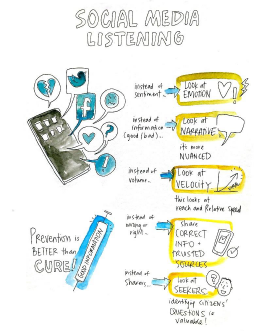 SOCIAL MEDIA
LISTENING
instead of
sentiment...
Look at
EMOTION
instead of
information
(good/bad)...
Look at
NARRATIVE
its more
NUANCED
instead of
volume...
Look at
VELOCITY
this looks at
reach and Relative Speed
instead of
wrong or
right...
Share
CORRECT
INFO +
TRUSTED
SOURCES
instead of
Sharers...
look at
SEEKERS
identify CITIZENS'
QUESTIONS is
valuable!
Prevention is
BETTER than
CURE!
GOOD INFORMATION